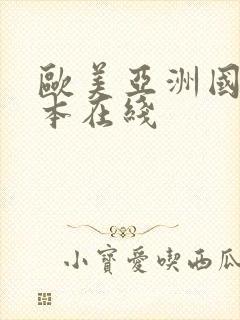 歐美亞洲國
本在綫
小寶愛喫西瓜